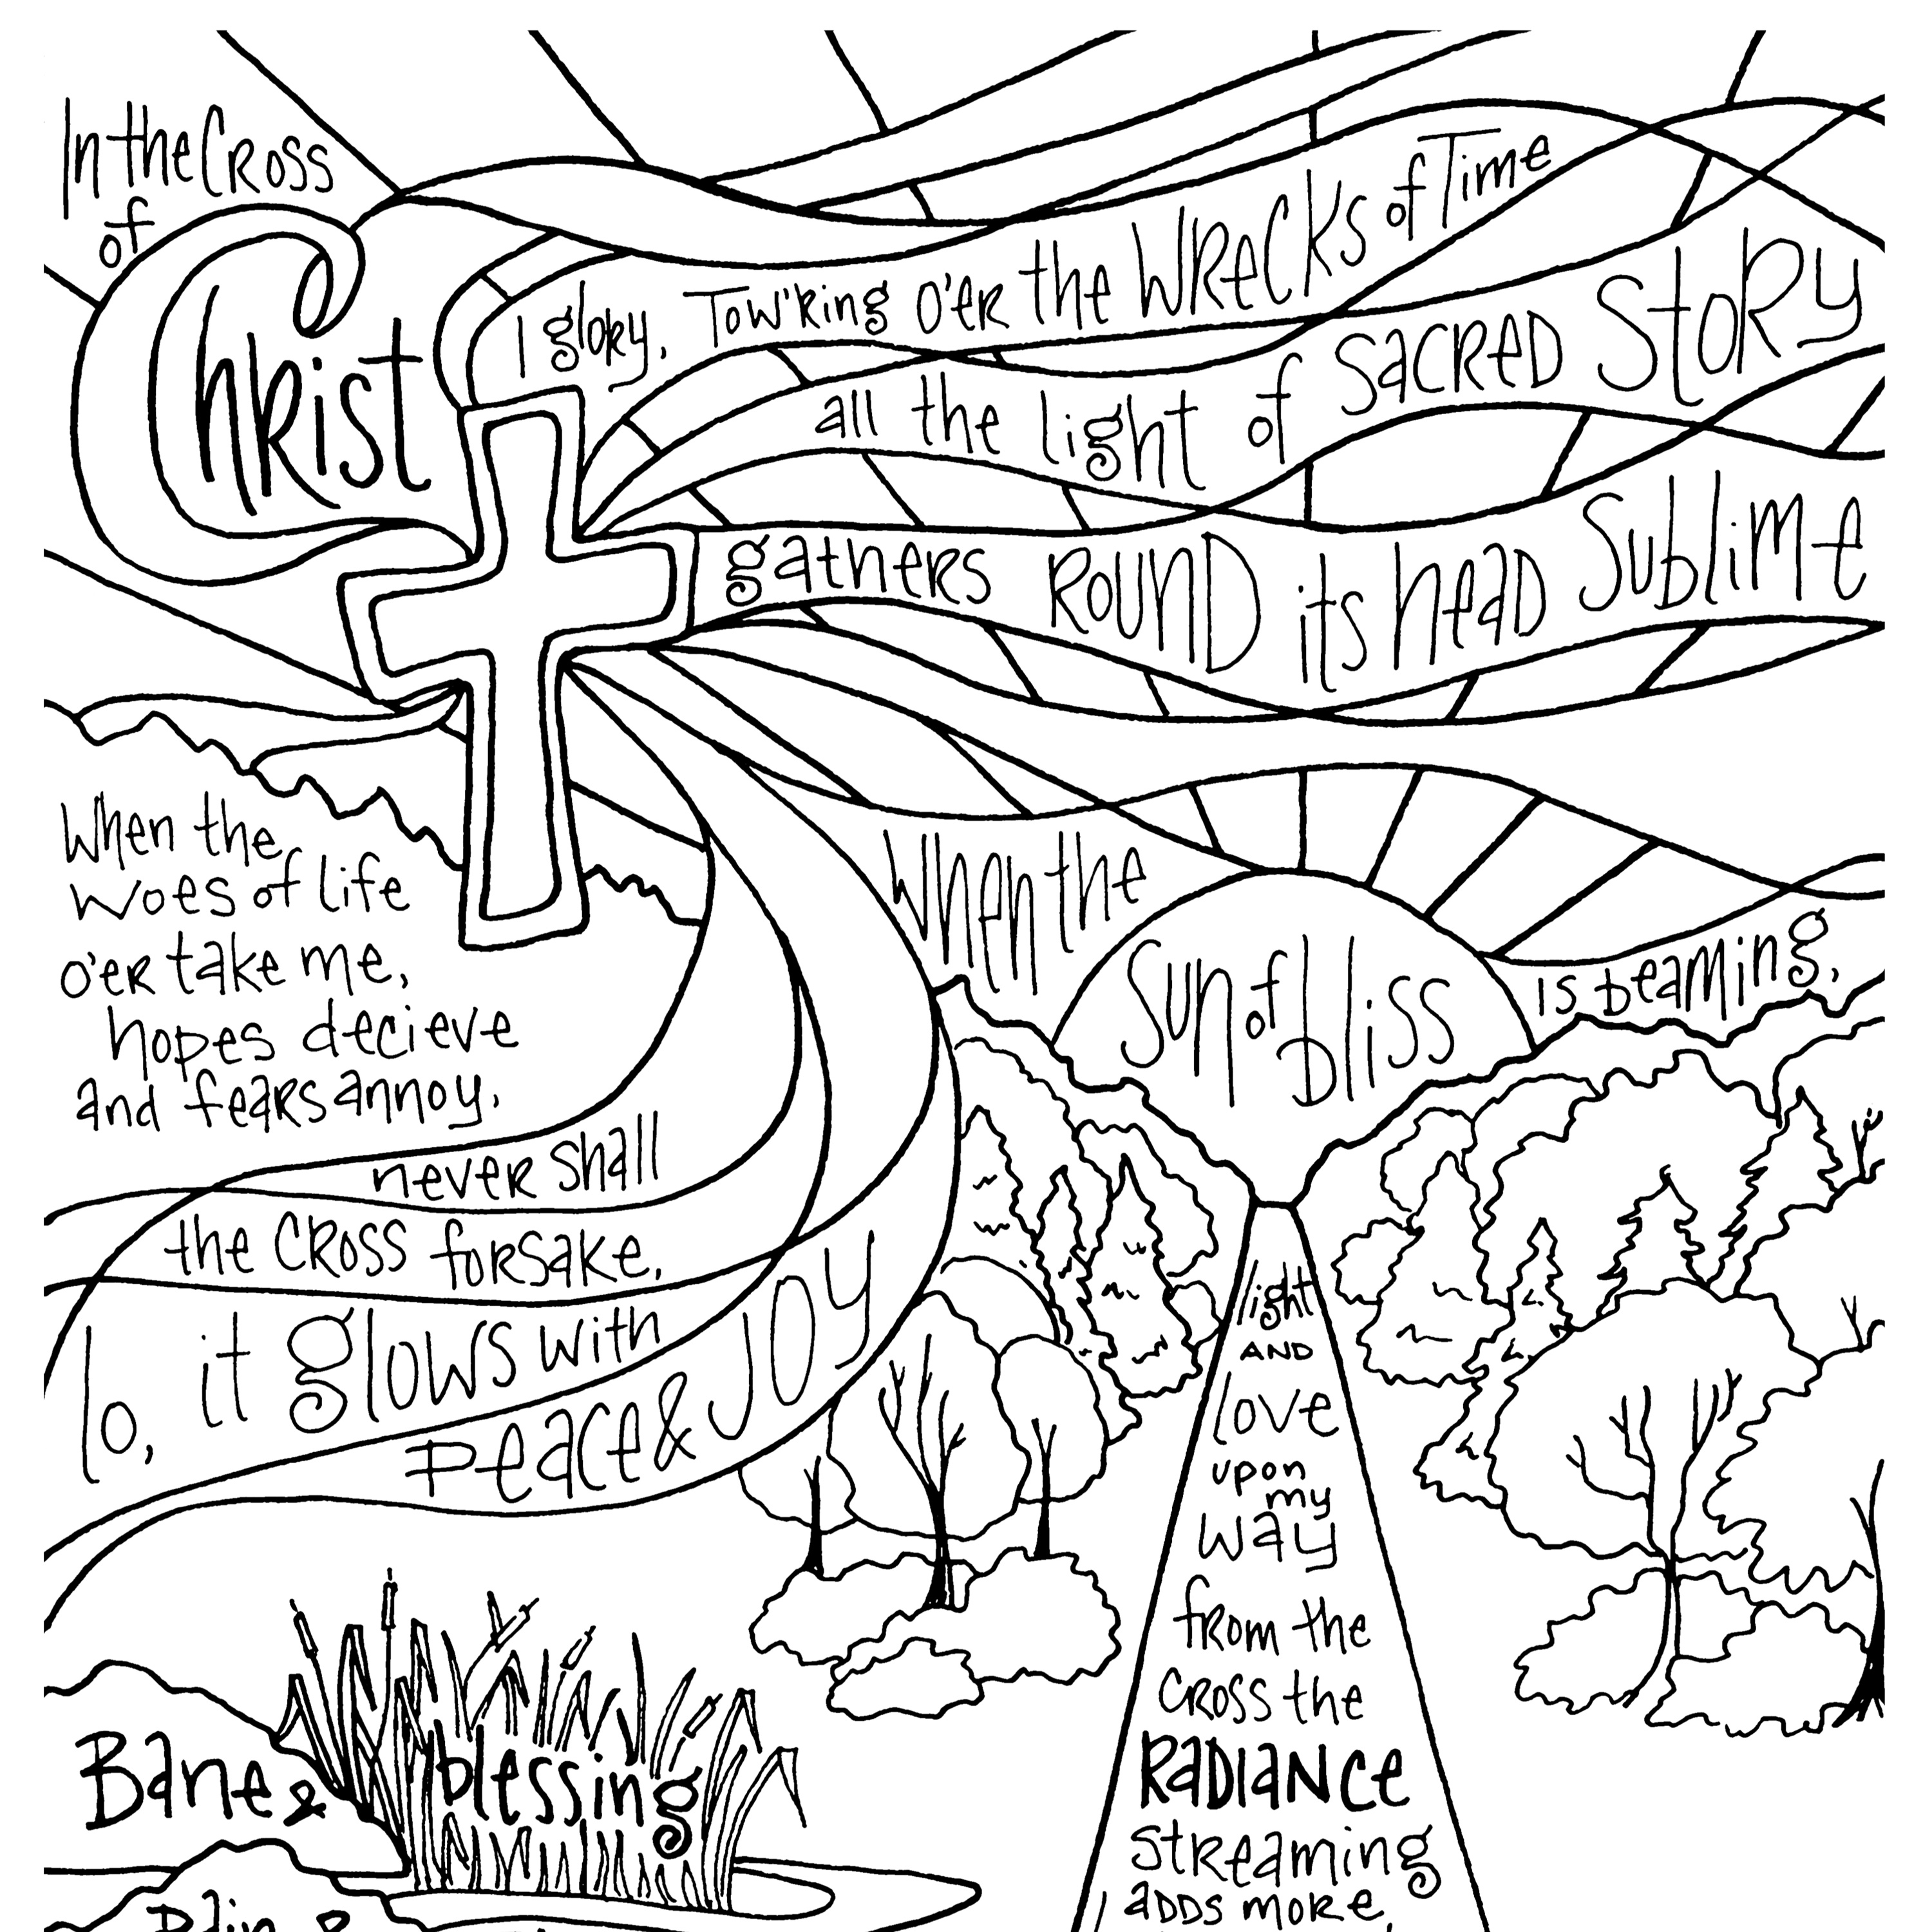 In the Cross
of
Christ
I glory, Tow'king o'er the Wrecks of Time
all the light of sacred Story
gathers Round its head Sublime
When the
woes of life
o'er take me,
hopes decieve
and fears annoy,
never shall
the Cross forsake,
lo, it glows with
Peace & Joy
When the
Sun of bliss
is beaming,
light
AND
love
upon
my
way
from the
cross the
Radiance
streaming
adds more,
Bane &
blessing
Pain &